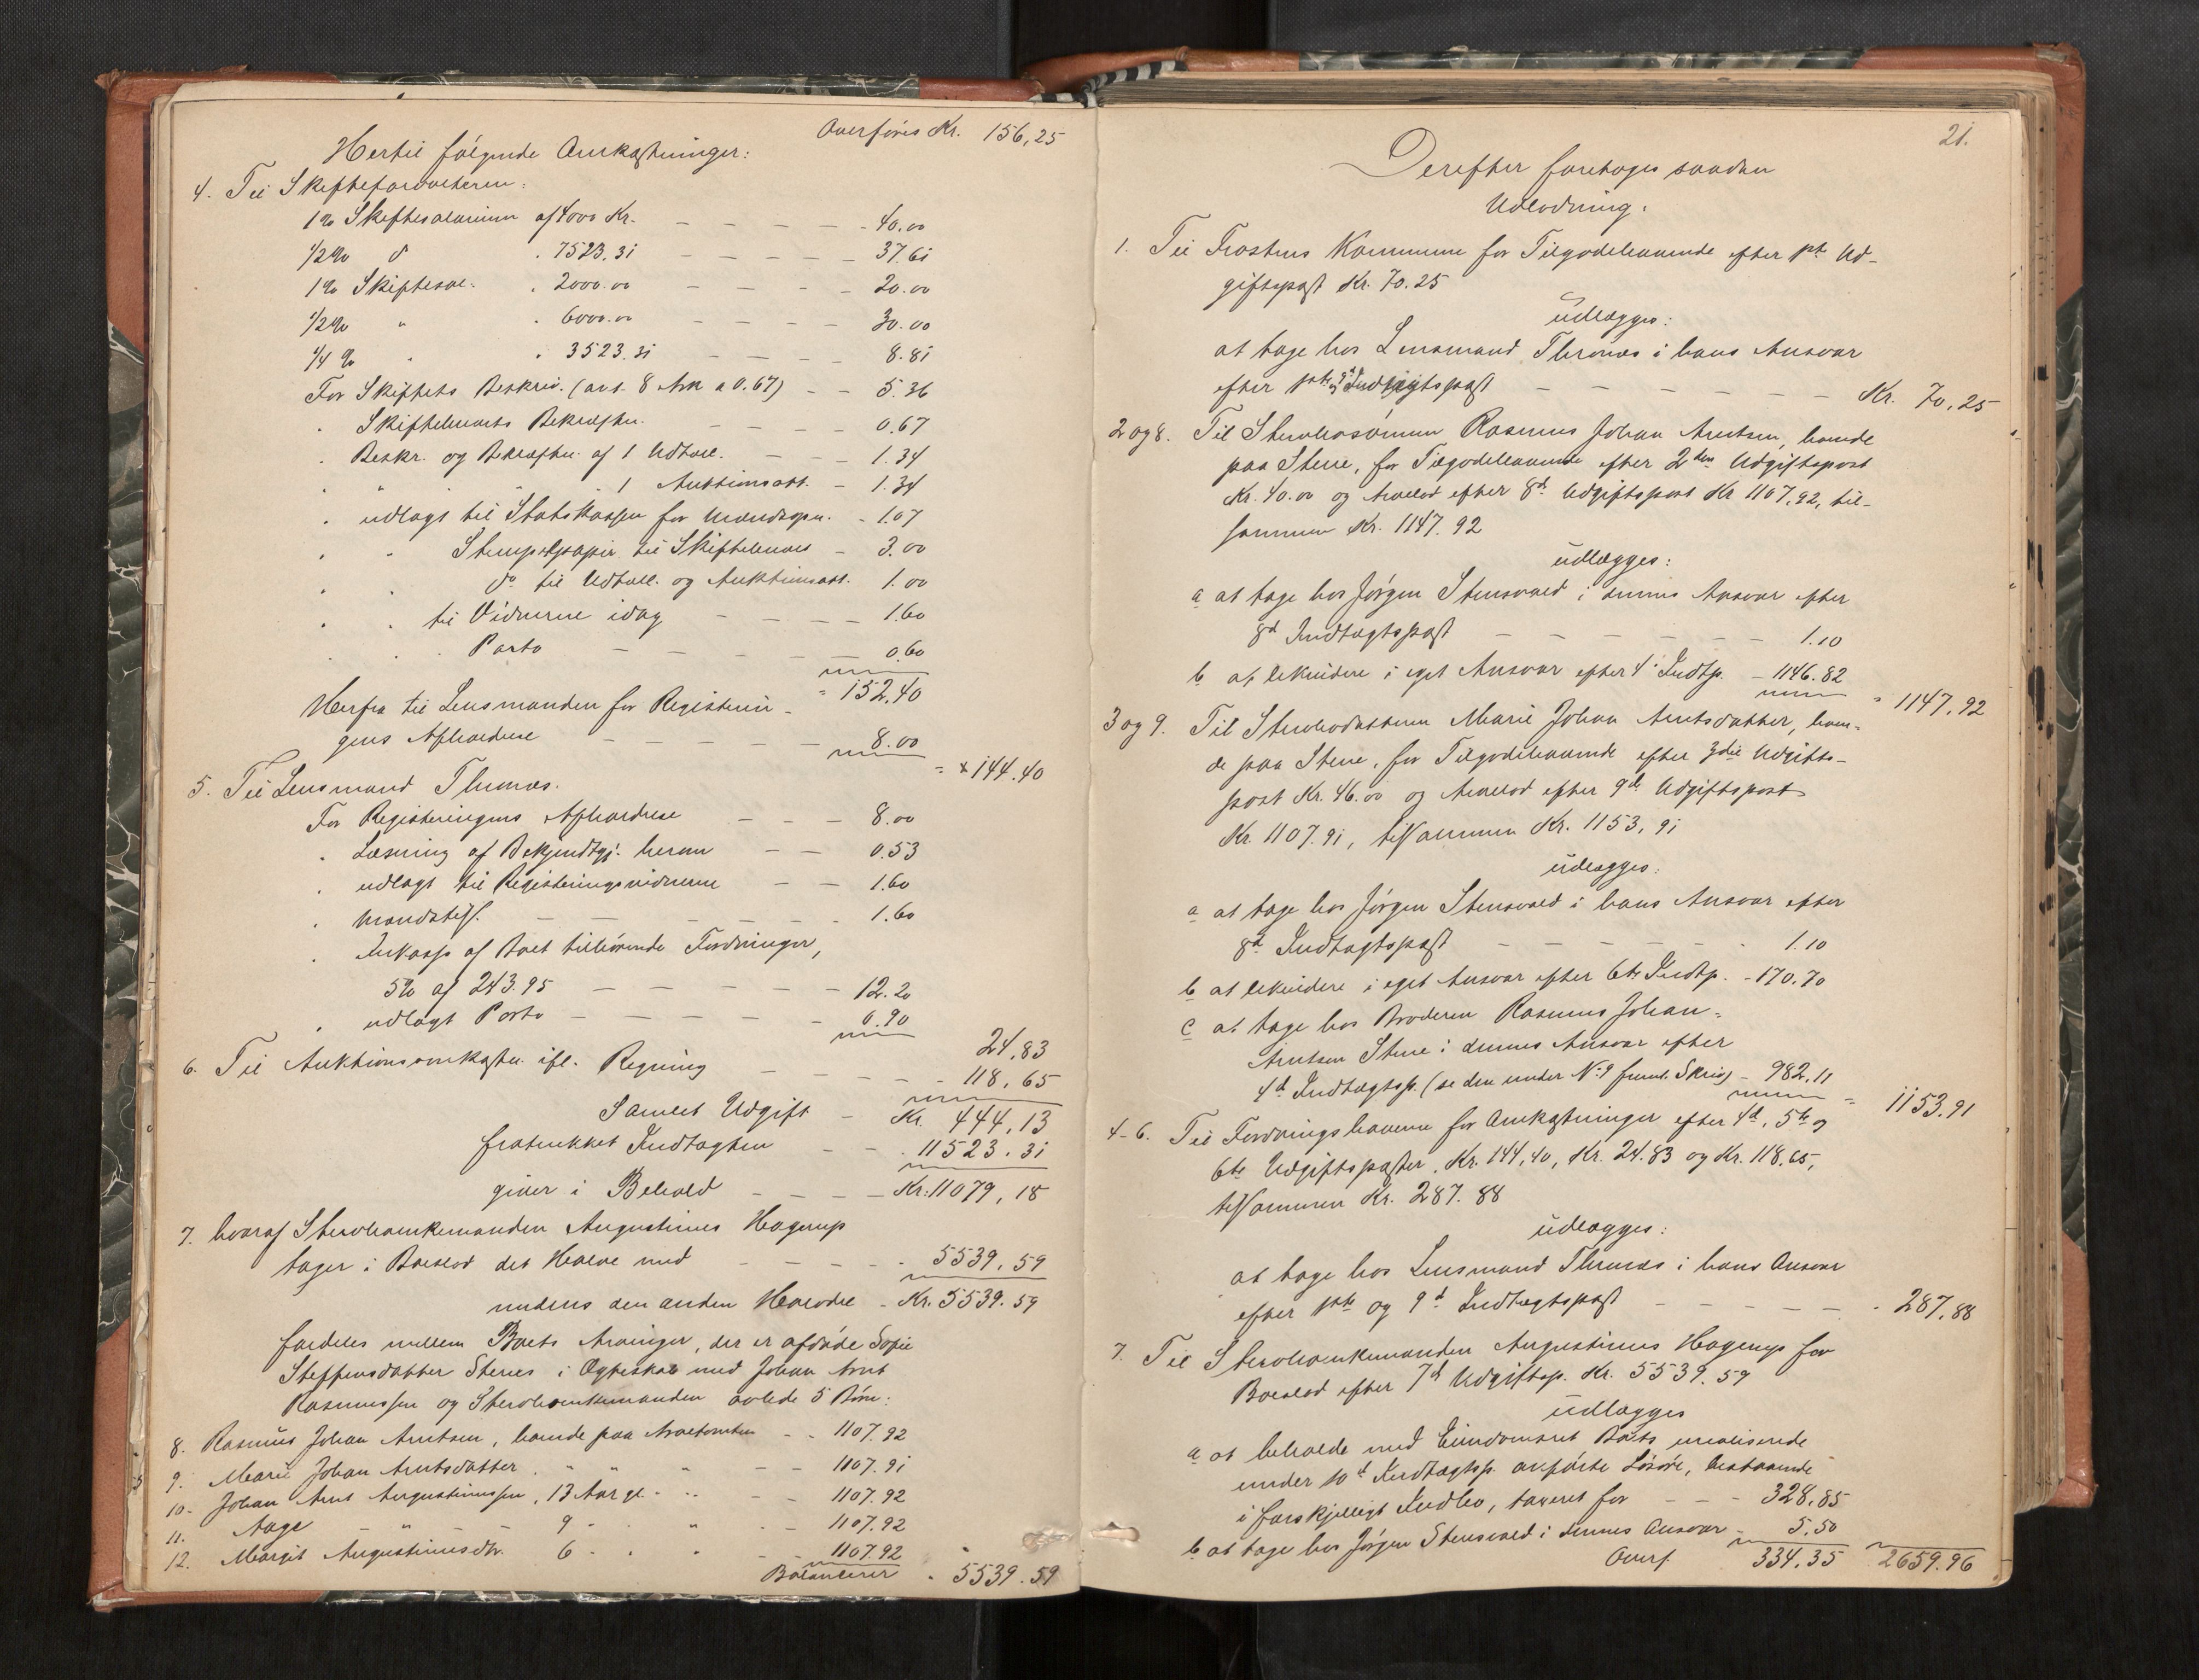 Overføres Kr. 156,25
Hertil følgende Omkostninger:
4. Til Skifteforvalteren:
1% Skiftesalarium af 4000 Kr. - - - - - 40.00
1/2% do . 7523.31 - - - - - 37.61
1% Skiftesal. . 2000.00 - - - - 20.00
1/2% " . 6000.00 - - - - 30.00
1/4% " . 3523.31 - - - - 8.81
For Skiftets Beskriv. (ant. 8 Ark a 0.67) - - 5.36
" Skiftebrevets Bekræftn. - - - - 0.67
" Beskr. og Bekræftn. af 1 Udtoll. - - - 1.34
" " " " 1 Auktionsatt. - 1.34
" udlagt til Statskassen for - 1.07
" " Stempelpapir til Skiftebrevet - 3.00
" " do til Udtoll. og Auktionsatt. 1.00
" " til Vidnerne idag - - - - 1.60
" " Porto - - - - - 0.60
= 152.40
Herfra til Lensmanden for Registerin-
gens Afholdelse - - - - - 8.00
= 144.40
5. Til Lensmand Thronæs.
For Registeringens Afholdelse - - - 8.00
" Læsning af Bekjendtgj. herom - - 0.53
" udlagt til Registeringsvidnerne - - 1.60
" - - - - - 1.60
" Inkasso af Boet tilhørende Fordringer,
5% af 243.95 - - - - - 12.20
" udlagt Porto - - - - - 0.90
24,83
6. Til Auktionsomkostn. ifl. Regning - - - - 118,65
Samlet Udgift - Kr. 444,13
fratrukket Indtægten - - 11523.31
giver i Behold - - - - Kr. 11079,18
7. hvoraf Stervboenkemanden Augustinus Hagerup
tager i Boeslod det Halve med - - - - 5539,59
medens den anden Halvdel - Kr. 5539.59
fordeles mellem Boets Arvinger, der er afdøde Sofie
Steffensdatter Stenes i Ægteskab med Johan Arnt
Rasmussen og Stervboenkemanden avlede 5 Børn:
8. Rasmus Johan Arntsen, boende paa - - 1107.92
9. Marie Johan Arntsdatter " " " - - 1107.91
10. Johan Arnt Augustinussen, 13 Aar gl. " - - 1107.92
11. Aage - " - 9 - " " - - 1107.92
12. Margit Augustinusdtr. 6 - " " - - 1107.92
Balancerer " 5539.59
21.
Derefter foretoges saadan
Udlodning:
1. Til Frostens Kommune for Tilgodehavende efter 1ste Ud-
giftspost Kr. 70.25
udlægges:
at tage hos Lensmand Thronæs i hans Ansvar
efter 1ste og 9d Indtægtspost - - - - - - Kr. 70,25
2 og 8. Til Stervbosønnen Rasmus Johan Arntsen, boende
paa Stene, for Tilgodehavende efter 2den Udgiftspost
Kr. 40.00 og Arvelod efter 8d Udgiftspost Kr 1107,92, til-
sammen Kr. 1147.92
udlægges:
a at tage hos Jørgen Stensvald i dennes Ansvar efter
8d Indtægtspost - - - - - - 1.10
b at likvidere i eget Ansvar efter 4. Indtp. - 1146.82
= 1147.92
3 og 9. Til Stervbodatteren Marie Johan Arntsdatter, boen-
de paa Stene, for Tilgodehavende efter 3die Udgifts-
post Kr. 46.00 og Arvelod efter 9de Udgiftspost
Kr. 1107.91, tilsammen Kr. 1153,91
udlægges:
a at tage hos Jørgen Stensvald i hans Ansvar efter
8d Indtægtspost - - - - - - 1.10
b at likvidere i eget Ansvar efter 6te Indtp. - 170.70
c at tage hos Broderen Rasmus Johan
Arntsen Stene i dennes Ansvar efter
4d Indtægtsp. (se den under No 9 freml. Skriv) - 982.11
= 1153.91
4-6. Til Fordringshaverne for Omkostninger efter 4d, 5te og
6te Udgiftsposter, Kr. 144,40, Kr. 24.83 og Kr. 118.65,
tilsammen Kr. 287.88
udlægges:
at tage hos Lensmand Thronæs i hans Ansvar
efter 1ste og 9d Indtægtspost - - - - - 287.88
7. Til Stervboenkemanden Augustinus Hagerup for
Boeslod efter 7d Udgiftsp. Kr. 5539.59
udlægges
a at beholde med Eiendomsret Boets urealiserede
under 10d Indtægtsp. anførte Løsøre, bestaaende
i forskjelligt Indbo, taxeret for - - - 328,85
b at tage hos Jørgen Stensvald i dennes Ansvar - 5.50
Overf. 334.35 2659.96